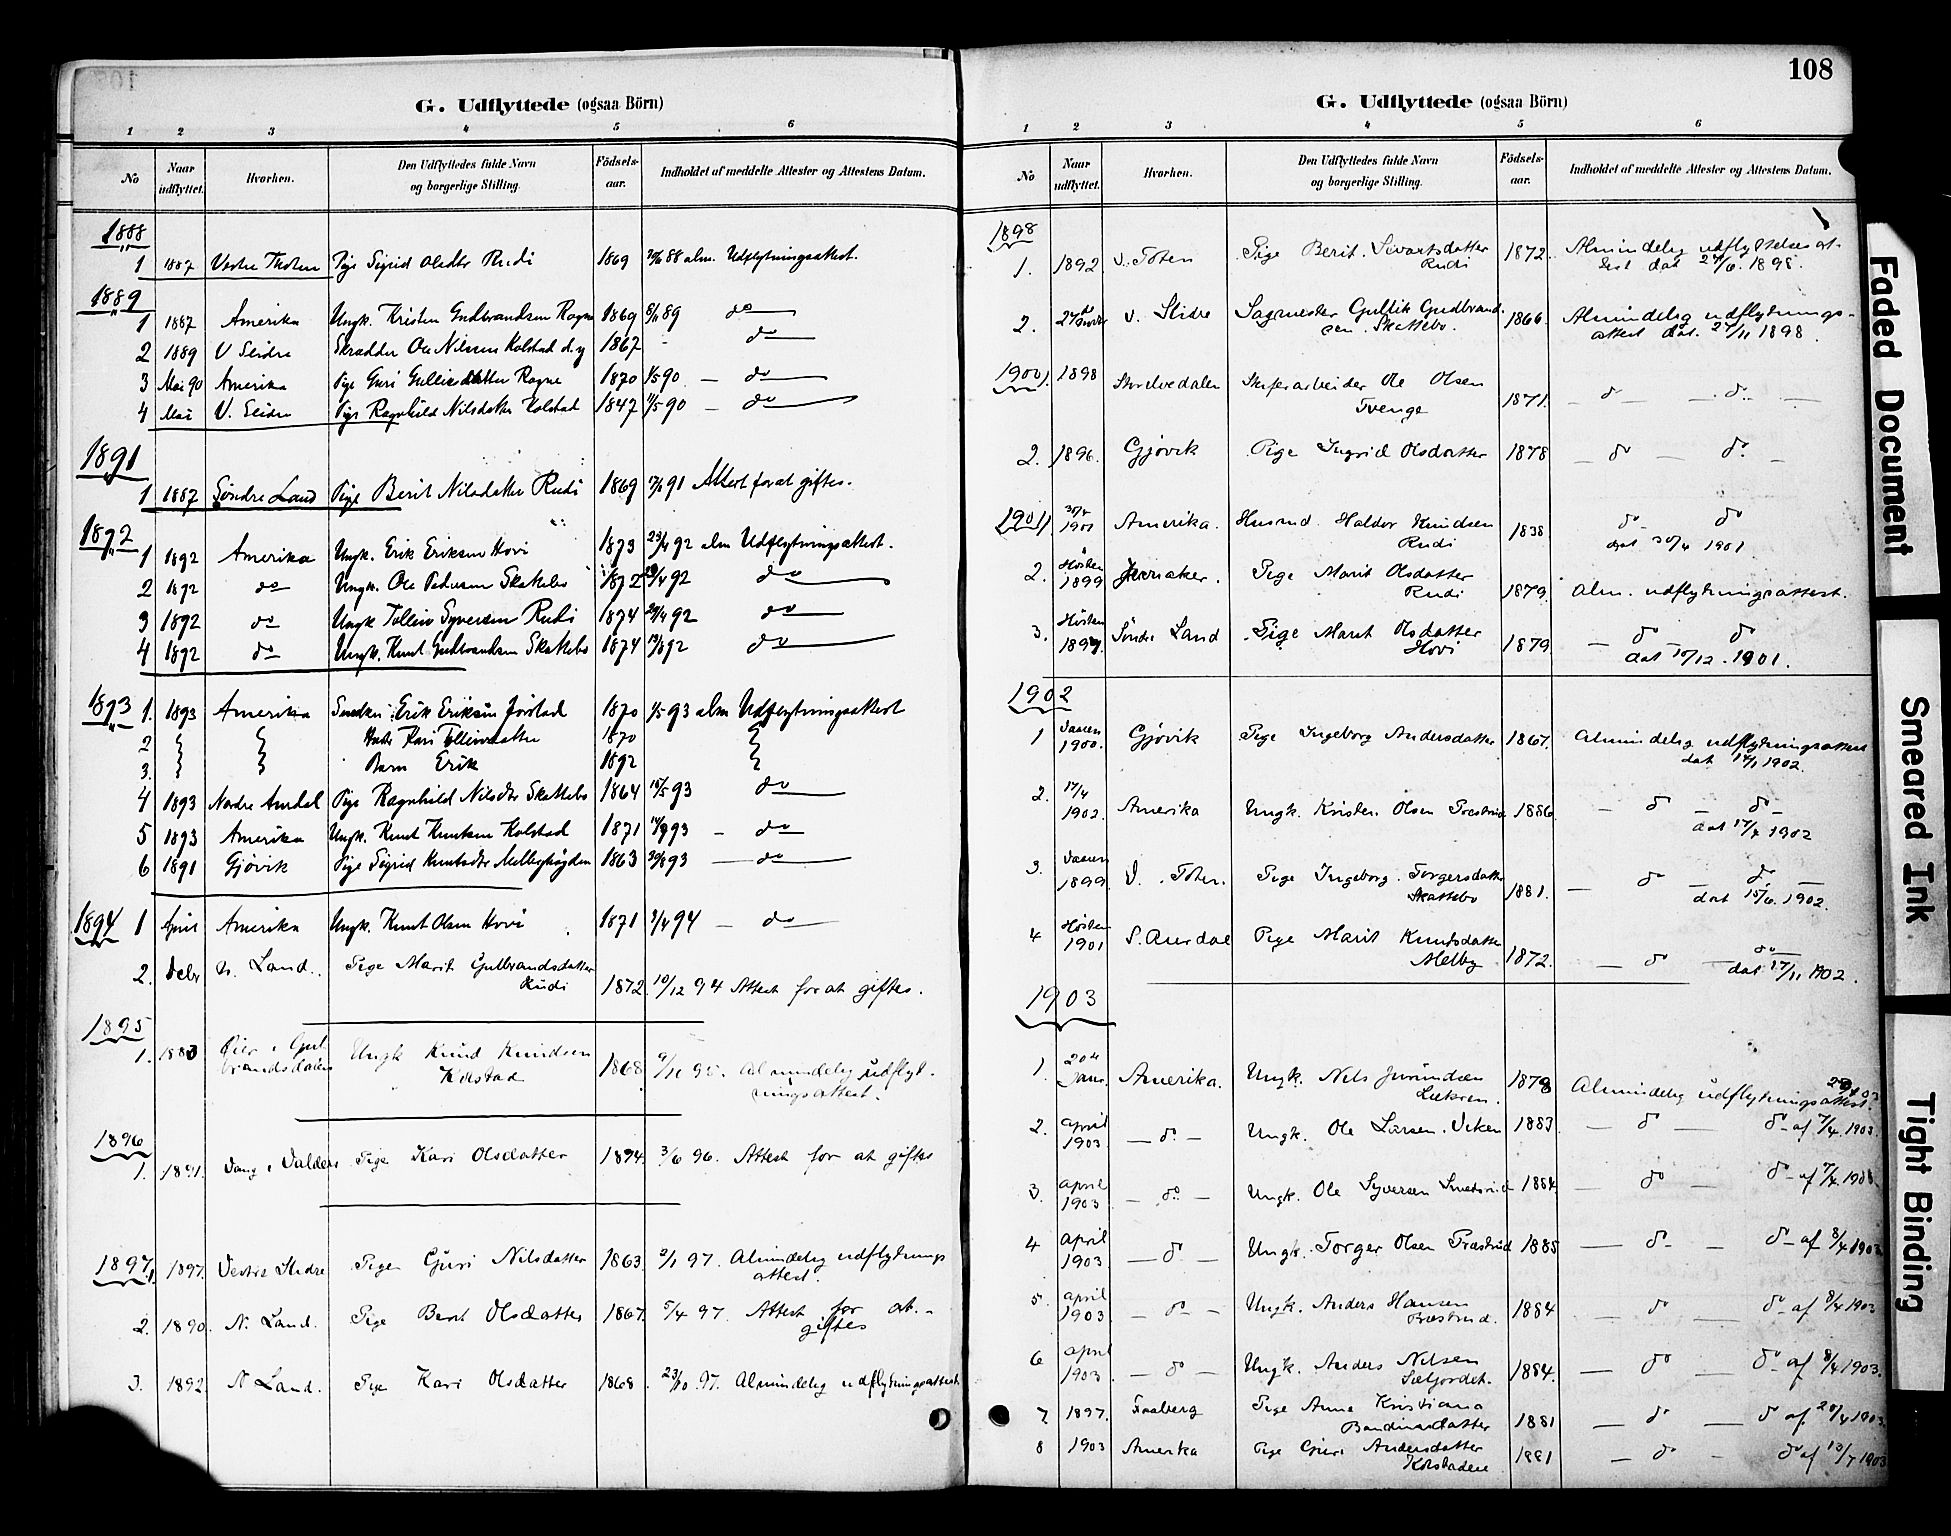 G. Udflyttede (ogsaa Börn)
1 2 3 4 5 6
No Naar udflyttet. Hvorhen. Den Udflyttedes fulde Navn og borgerlige Stilling. Födsels-aar. Indholdet af meddelte Attester og Attestens Datum.
1888
1 1887 Vestre Thoten Pige Sigrid Olsdtr Rudi 1869 88 alm. Udflytningsattest.
1889
1 1887 Amerika Ungk. Kristen Gudbrandsen Rogne 1869 89 do
2 1889 V Slidre Skrædder Ole Nilssen Kolstad d.y 1867 - do
3 Mai 90 Amerika Pige Guri Gulliksdatter Rogne 1870 1/5 90 — do
4 Mai V. Slidre Pige Ragnhild Nilsdatter Kolstad 1847 1/5 90 — do
1891
1 1887 Søndre Land Pige Berit Nilsdatter Rudi 1869 91 Attest for at giftes.
1892
1 1892 Amerika Ungk. Erik Eriksen Hovi 1873 23/4 92 alm Udflytningsattest.
2 1892 do Ungk. Ole Pedersen Skattebo 1872 /4 92 do
3 1892 do Ungk Tollein Syversen Rudi 1874 29/4 92 do
4 1892 do Ungk. Knut Gudbrandsen Skattebo 1874 92 do
1893 1. 1893 Amerika Snedker Erik Eriksen Jørstad 1870 1/5 93 alm Udflytningsattest
2 Kari Tolleivsdatter 1870
3. Barn Erik 1892
4 1893 Nordre Aurdal Pige Ragnhild Nilsdtr Skattebo 1864 15/5 93 do
5 1893 Amerika Ungk. Knut Knutsen Kolstad 1871 93 — do
6 1891 Gjövik Pige Sigrid Knutsdtr Melbyhögden 1863 93 — do
1894 1 April Amerika Ungk. Knut Olsen Hovi 1871 /4 94 — do
2. Debr N. Land. Pige Marit Gulbrandsdatter Rudi 1872 10/12 94 Attest for at giftes.
1895
1. 1883 Øier i Gul-
brandsdalen Ungk Knud Knudsen
Kolstad 1868 9/11 95. Almindelig udflyt-
ningsattest.
1896
1. 1891. Vang i Valders Pige Kari Olsdatter 1874. 3/6 96. Attest for at giftes
1897.
1. 1897. Vestre Slidre Pige Guri Nilsdatter 1863. 2/1 97. Almindelig udflytnings
attest.
2. 1890. N. Land. Pige Berit Olsdatter 1867. 5/4 97. Attest for at
giftes
3. 1892. N Land. Pige Kari Olsdatter 1868. 23/10 97. Almindelig udflytningsattest
108
G. Udflyttede (ogsaa Börn)
1 2 3 4 5 6
No Naar udflyttet. Hvorhen. Den Udflyttedes fulde Navn og borgerlige Stilling. Födsels-aar. Indholdet af meddelte Attester og Attestens Datum.
1898
1. 1892 V. Toten Pige Berit Sivartsdatter
Rudi 1872. Almindelig udflyttelsesat-
test dat 27/6. 1898.
2. V. Slidre Sagmester Gullik Gudbrand-
sen Skattebo. 1866. Almindelig udflytnings-
attest dat. 27/11 1898.
1900. 1. 1898 Storelvedalen Skiferarbeider Ole Olsen
Tvenge 1871. — do — — do —
2. 1896. Gjövik Pige Ingrid Olsdatter 1878 — do — do —
1901. 1. 30/4 1901 Amerika. Husmd. Haldor Knudsen
Rudi 1838 do do
dat 30/4 1901.
2. Høsten 1899 Jevnaker. Pige Marit Olsdatter
Rudi 1879. Alm. udflytningsattest.
3. Høsten 1897. Søndre Land Pige Marit Olsdatter
Hovi 1879 — do do
dat 10/12. 1901.
1902
1 Vaaren 1900. Gjövik Pige Ingeborg Andersdatter 1867. Almindelig udflytningsattest
dat 1902.
2. 17/4 1902. Amerika Ungk. Kristen Olsen Præstrud 1886 — do — do —
dat 17/4 1902
3. Vaaren 1899 V. Toten. Pige Ingeborg Torgersdatter
Skattebo 1881. — do — do —
dat 15/6. 1902.
4 Høsten 1901 S. Aurdal Pige Marit Knutsdatter
Melby 1872. — do — do
dat 17/11 1902.
1903
1. Janr. Amerika. Ungk. Nils Jørundsen 1878 Almindelig udflytningsattest.
2. april 1903 — do — Ungk. Ole Larsen Viken 1883 — do — do af 7/4 1903.
3. april 1903 — do — Ungk. Ole Syversen 1884. — do — do af 7/4 1903.
4 april 1903 — do — Ungk. Torger Olsen Præstrud 1885 — do — do af 8/4 1903
5. april 1903 — do — Ungk. Anders Hansen
Præstrud. 1884 — do — do af 8/4 1903
6 april 1903 — do — Ungk. Anders Nilsen 1884. — do — do af 8/4 1903.
7. 1897. Faaberg Pige Anne Kristiana 1881 — do — do af 20/4 1903.
8 1903 Amerika Pige Guri Andersdatter
Kolstadeie 1881 — do — do af 13/7 1903
Faded Document
Smeared Ink
Tight Binding